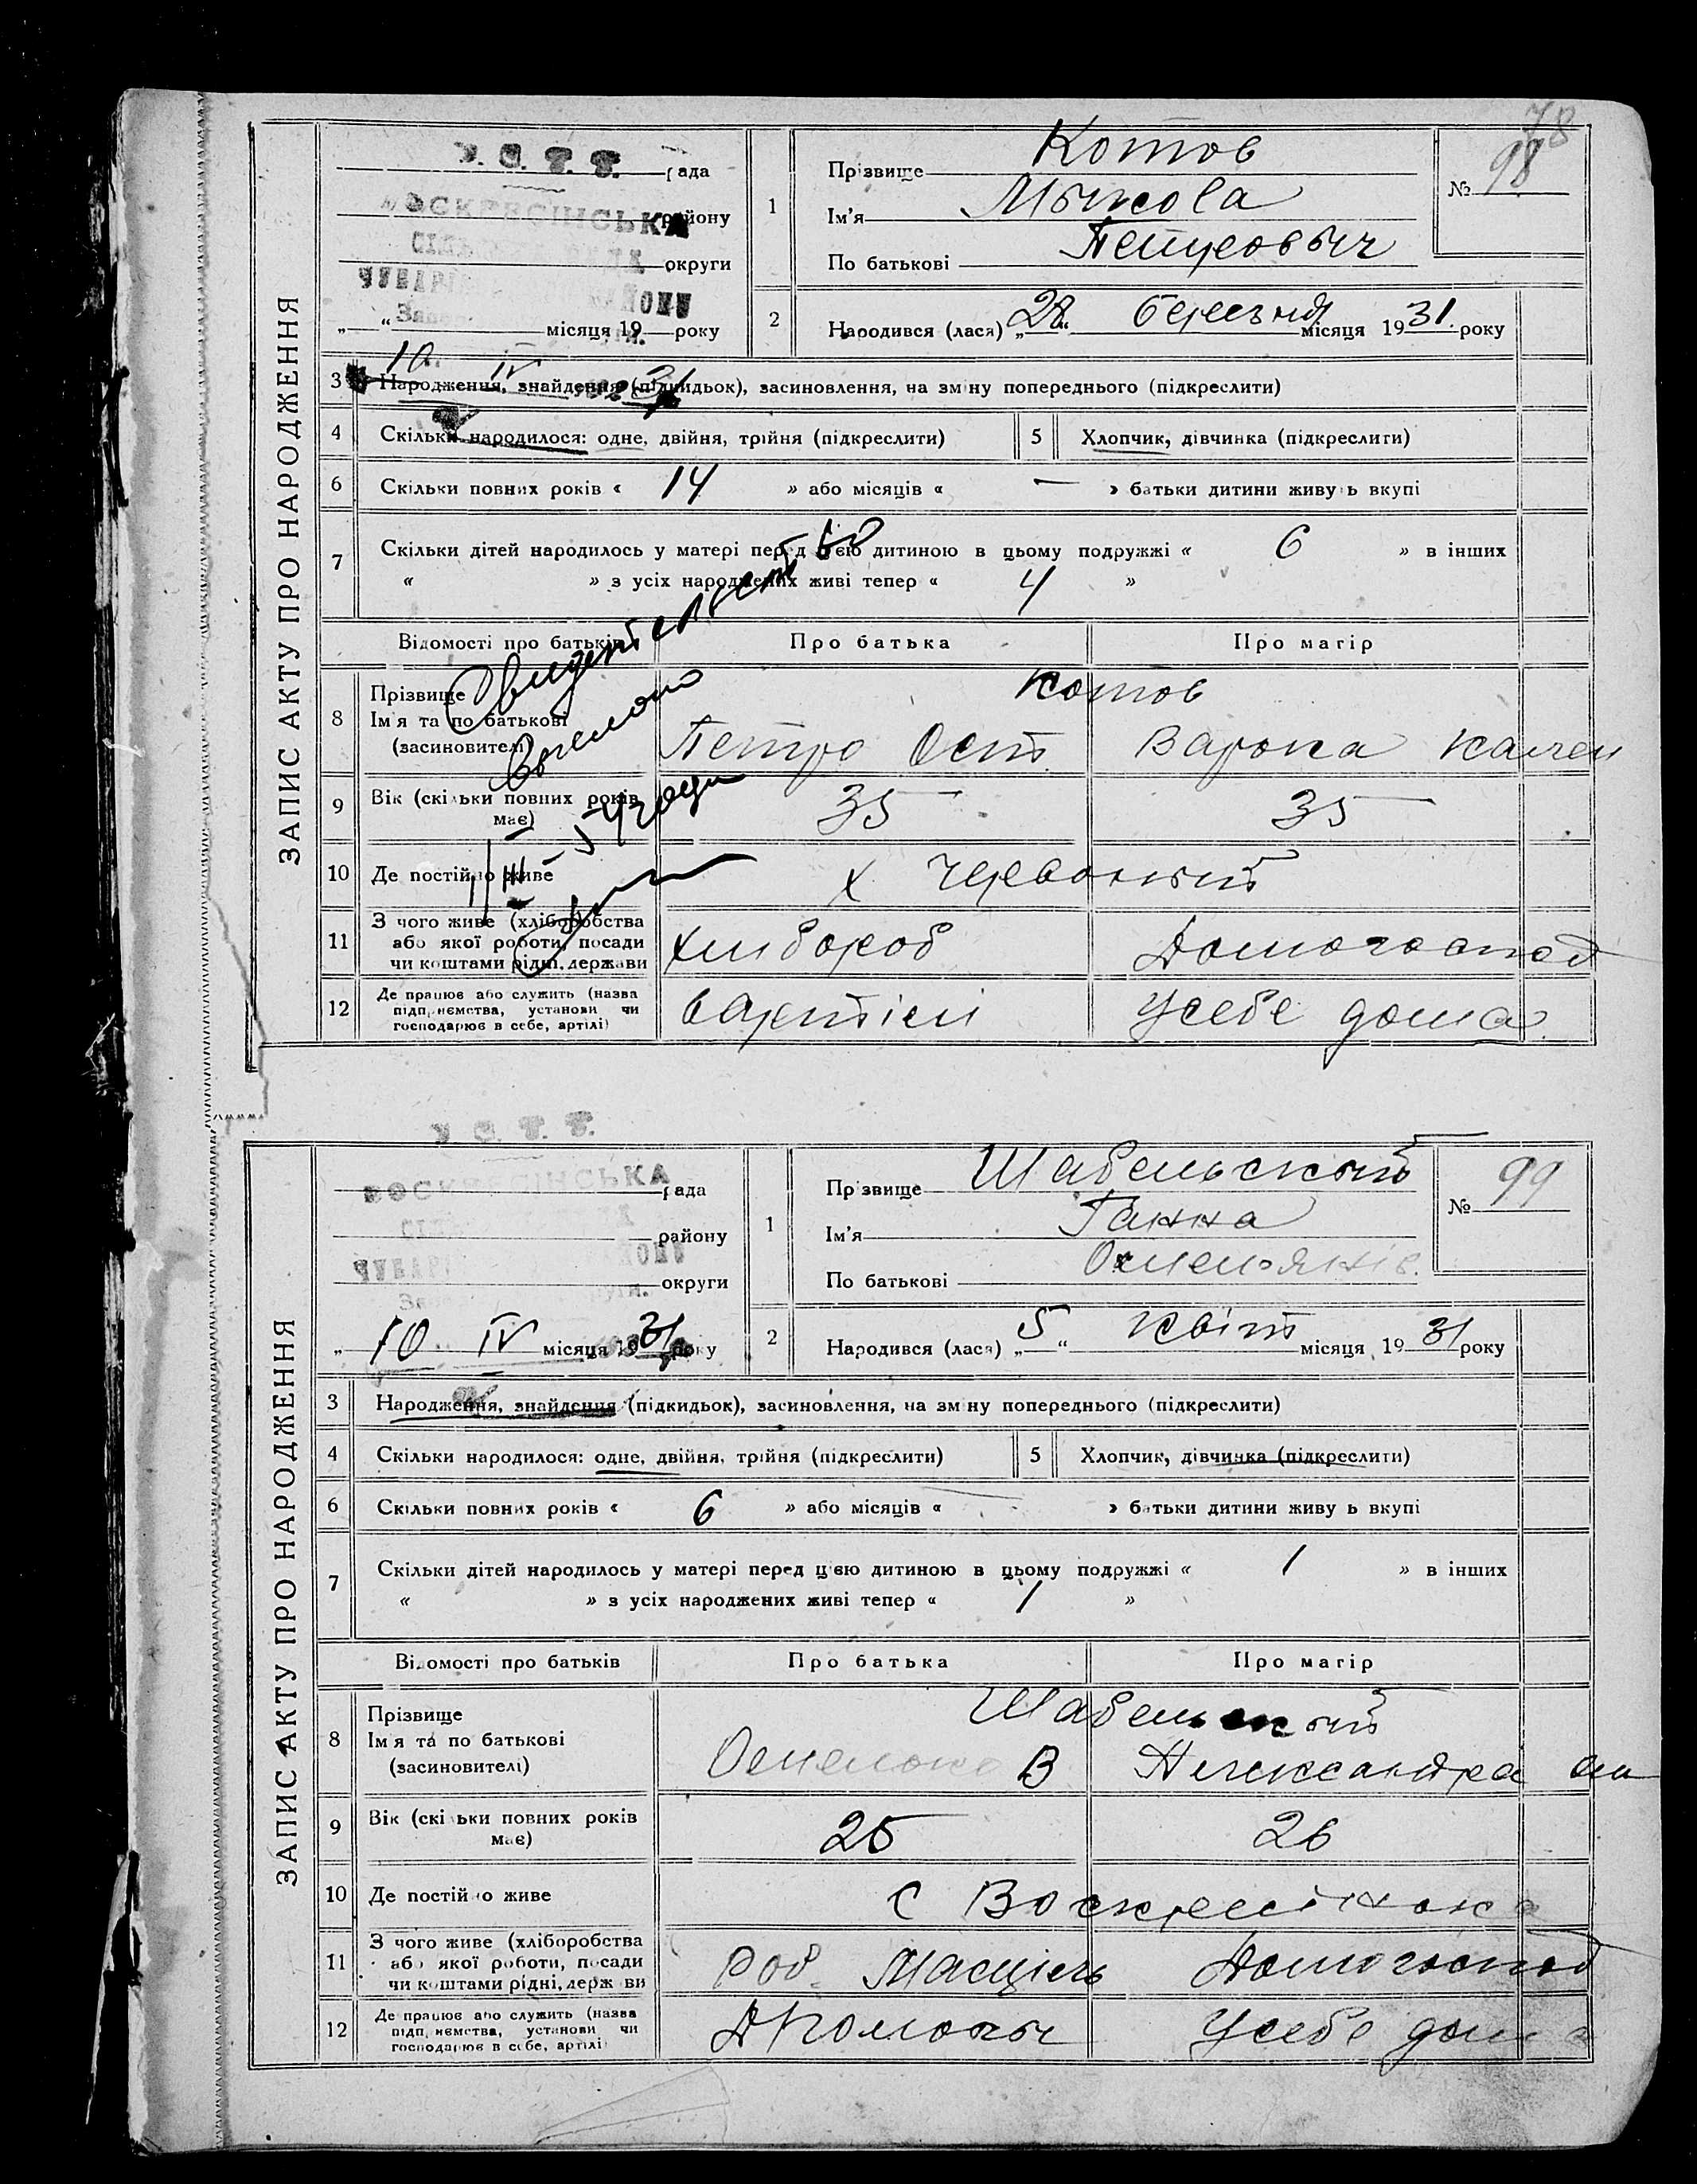 78
У. С. Т. Т.
рада
ВОСКРЕСІНСЬКА
району
округи
ЗАПИС АКТУ ПРО НАРОДЖЕННЯ
„ “ місяця 19 року
10 IV 31
1
Прізвище Котов
Ім'я Мыкола
По батькові Петровыч
№ 98
2
Народився (лася) „28“ березня місяця 1931. року
3 Народження, знайдення (підкидьок), засиновлення, на зміну попереднього (підкреслити)
4 Скільки народилося: одне, двійня, трійня (підкреслити)
5 Хлопчик, дівчинка (підкреслити)
6 Скільки повних років « 14 » або місяців « — » батьки дитини живуть вкупі
7 Скільки дітей народилось у матері перед цією дитиною в цьому подружжі « 6 » в інших
« » з усіх народжених живі тепер « 4 »
Свидетельство
выслано
Відомості про батьків Про батька Про матір
8 Прізвище Котов
Ім'я та по батькові
(засиновителі) Петро Ост. Варка
9 Вік (скільки повних років
має) 35 35
10 Де постійно живе х Червоный
11 З чого живе (хліборобства
або якої роботи, посади
чи коштами рідні, держави хлибороб Домогоспод
12 Де працює або служить (назва
підприємства, установи чи
господарює в себе, артілі) вартіли Усебе дома
У. С. Т. Т.
ВОСКРЕСІНСЬКА
рада
району
округи
ЗАПИС АКТУ ПРО НАРОДЖЕННЯ
„ 10 “ IV місяця 1931 року
1
Прізвище Шабельськый
Ім'я Ганна
По батькові
№ 99
2
Народився (лася) „5“ Квіт місяця 1931 року
3 Народження, знайдення (підкидьок), засиновлення, на зміну попереднього (підкреслити)
4 Скільки народилося: одне, двійня, трійня (підкреслити)
5 Хлопчик, дівчинка (підкреслити)
6 Скільки повних років « 6 » або місяців « » батьки дитини живуть вкупі
7 Скільки дітей народилось у матері перед цією дитиною в цьому подружжі « 1 » в інших
« » з усіх народжених живі тепер « 1 »
Відомості про батьків Про батька Про матір
8 Прізвище Шабельскый
Ім'я та по батькові
(засиновителі) В Александра
9 Вік (скільки повних років
має) 25 26
10 Де постійно живе с Воскресінока
11 З чого живе (хліборобства
або якої роботи, посади
чи коштами рідні, держави роб. Домогоспод
12 Де працює або служить (назва
підприємства, установи чи
господарює в себе, артілі) Усебе дома